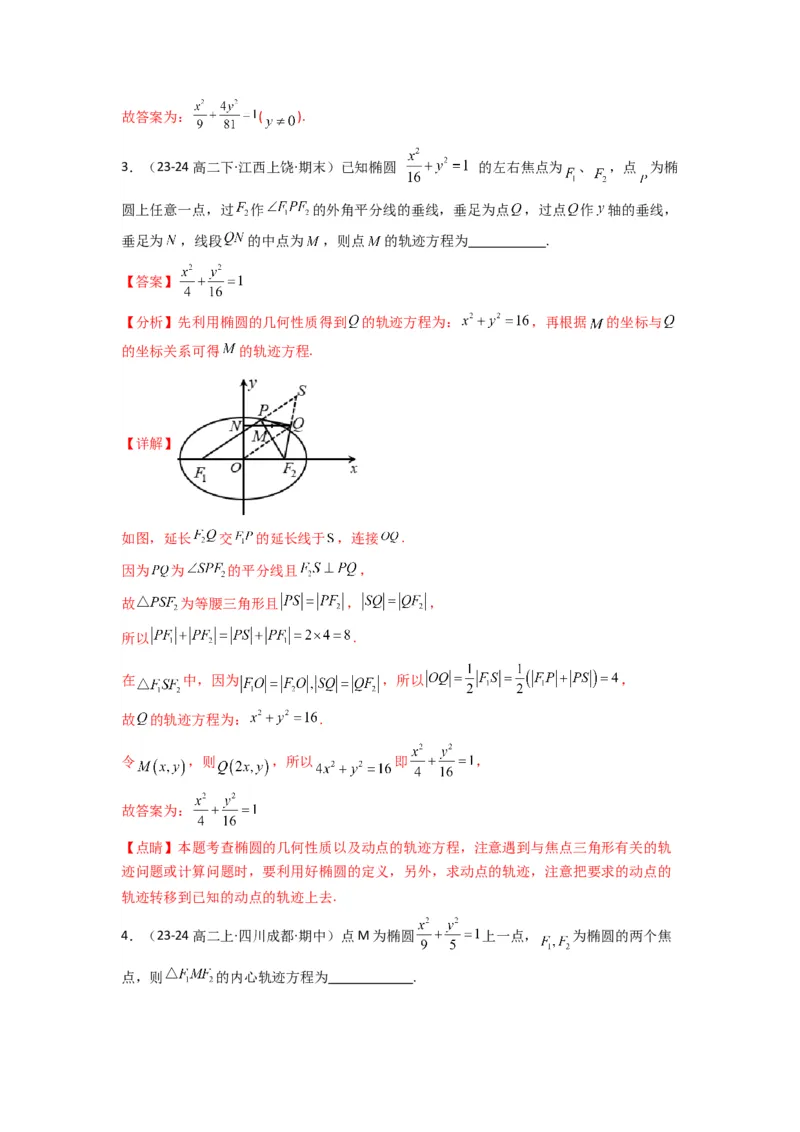 故答案为：x²/9 + 4y²/81 = 1 (y ≠ 0).
3．（23-24 高二下·江西上饶·期末）已知椭圆 x²/16 + y² = 1 的左右焦点为 F₁、F₂，点 P 为椭
圆上任意一点，过 F₂ 作 ∠F₁PF₂ 的外角平分线的垂线，垂足为点 Q，过点 Q 作 y 轴的垂线，
垂足为 N，线段 QN 的中点为 M，则点 M 的轨迹方程为____________.
【答案】x²/4 + y²/16 = 1
【分析】先利用椭圆的几何性质得到 Q 的轨迹方程为：x² + y² = 16，再根据 M 的坐标与 Q
的坐标关系可得 M 的轨迹方程.
y
S
P
N
Q
M
【详解】
F₁ O F₂ x
如图，延长 F₂Q 交 F₁P 的延长线于 S，连接 OQ.
因为 PQ 为 ∠SPF₂ 的平分线且 F₂S ⊥ PQ，
故 △PSF₂ 为等腰三角形且 |PS| = |PF₂|，|SQ| = |QF₂|，
所以 |PF₁| + |PF₂| = |PS| + |PF₁| = 2×4 = 8.
在 △F₁SF₂ 中，因为 |F₁O| = |F₂O|, |SQ| = |QF₂|，所以 |OQ| = 1/2 |F₁S| = 1/2 (|F₁P| + |PS|) = 4，
故 Q 的轨迹方程为：x² + y² = 16.
令 M(x, y)，则 Q(2x, y)，所以 4x² + y² = 16 即 x²/4 + y²/16 = 1，
故答案为：x²/4 + y²/16 = 1
【点睛】本题考查椭圆的几何性质以及动点的轨迹方程，注意遇到与焦点三角形有关的轨
迹问题或计算问题时，要利用好椭圆的定义，另外，求动点的轨迹，注意把要求的动点的
轨迹转移到已知的动点的轨迹上去.
4．（23-24 高二上·四川成都·期中）点 M 为椭圆 x²/9 + y²/5 = 1 上一点，F₁, F₂ 为椭圆的两个焦
点，则 △F₁MF₂ 的内心轨迹方程为____________.